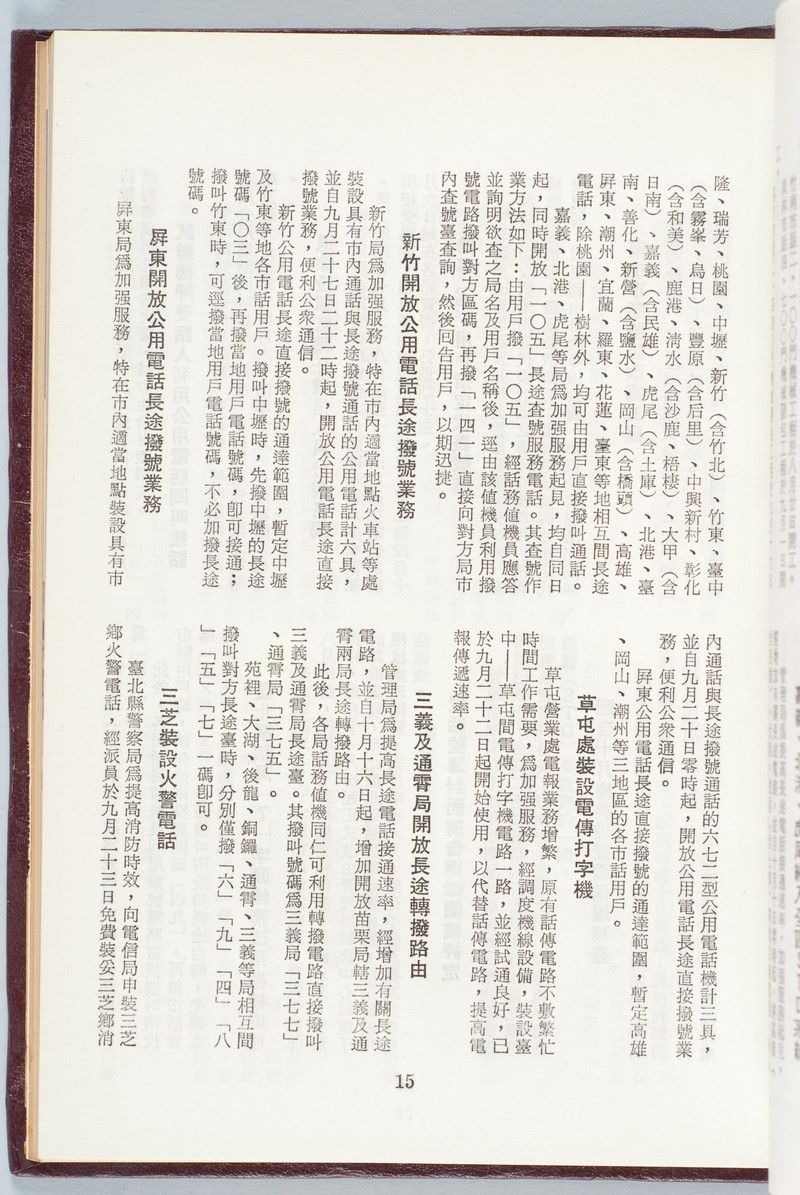 隆、瑞芳、桃園、中壢、新竹（含竹北）、竹東、臺中
（含霧峯、烏日）、豐原（含后里）、中興新村、彰化
（含和美）、鹿港、清水（含沙鹿、梧棲）、大甲（含
日南）、嘉義（含民雄）、虎尾（含土庫）、北港、臺
南、善化、新營（含鹽水）、岡山（含橋頭）、高雄、
屏東、潮州、宜蘭、羅東、花蓮、臺東等地相互間長途
電話，除桃園──樹林外，均可由用戶直接撥叫通話。
嘉義、北港、虎尾等局爲加强服務起見，均自同日
起，同時開放「一〇五」長途查號服務電話。其查號作
業方法如下：由用戶撥「一〇五」，經話務值機員應答
並詢明欲查之局名及用戶名稱後，逕由該值機員利用撥
號電路撥叫對方區碼，再撥「一四一」直接向對方局市
內查號臺查詢，然後囘告用戶，以期迅捷。
新竹開放公用電話長途撥號業務
新竹局爲加强服務，特在市內適當地點火車站等處
裝設具有市內通話與長途撥號通話的公用電話計六具，
並自九月二十七日二十二時起，開放公用電話長途直接
撥號業務，便利公衆通信。
新竹公用電話長途直接撥號的通達範圍，暫定中壢
及竹東等地各市話用戶。撥叫中壢時，先撥中壢的長途
號碼「〇三」後，再撥當地用戶電話號碼，卽可接通；
撥叫竹東時，可逕撥當地用戶電話號碼，不必加撥長途
號碼。
屏東開放公用電話長途撥號業務
屏東局爲加强服務，特在市內適當地點裝設具有市
內通話與長途撥號通話的六七二型公用電話機計三具，
並自九月二十日零時起，開放公用電話長途直接撥號業
務，便利公衆通信。
屏東公用電話長途直接撥號的通達範圍，暫定高雄
、岡山、潮州等三地區的各市話用戶。
草屯處裝設電傳打字機
草屯營業處電報業務增繁，原有話傳電路不敷繁忙
時間工作需要，爲加强服務，經調度機線設備，裝設臺
中──草屯間電傳打字機電路一路，並經試通良好，已
於九月二十二日起開始使用，以代替話傳電路，提高電
報傳遞速率。
三義及通霄局開放長途轉撥路由
管理局爲提高長途電話接通速率，經增加有關長途
電路，並自十月十六日起，增加開放苗栗局轄三義及通
霄兩局長途轉撥路由。
此後，各局話務值機同仁可利用轉撥電路直接撥叫
三義及通霄局長途臺。其撥叫號碼爲三義局「三七七」
、通霄局「三七五」。
苑裡、大湖、後龍、銅鑼、通霄、三義等局相互間
撥叫對方長途臺時，分別僅撥「六」「九」「四」「八
」「五」「七」一碼卽可。
三芝裝設火警電話
臺北縣警察局爲提高消防時效，向電信局申裝三芝
鄉火警電話，經派員於九月二十三日免費裝妥三芝鄉消
15